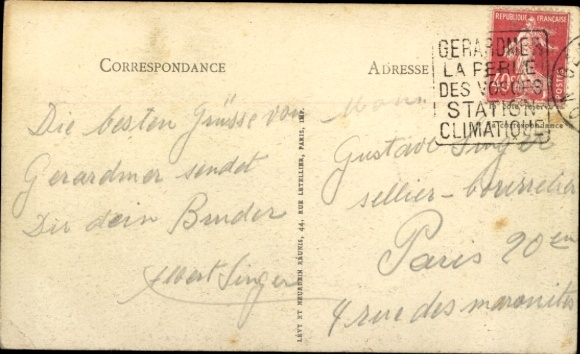 CORRESPONDANCE
Die besten Grüsse von
Gerardmer sendet
Dir dein Bruder
Albert Singer
LÉVY ET NEURDEIN RÉUNIS, 44, RUE LETELLIER, PARIS, IMP.
ADRESSE
RÉPUBLIQUE FRANÇAISE
40c
POSTES
GERARDMER
LA PERLE
DES VOSGES
STATION
CLIMATIQUE
côté réservé
la correspondance
Mons.
Gustave Singer
sellier-bourrelier
Paris 20em
4 rue des maronites